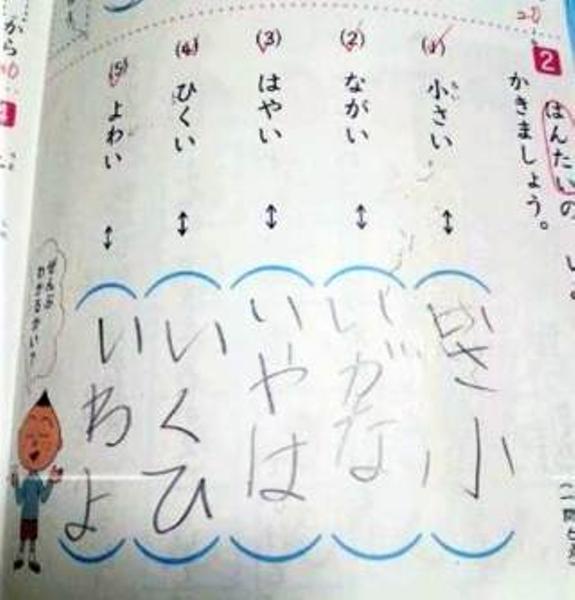 2 はんたいの
かきましょう。
(1) 小さい ↔ いさ小
(2) ながい ↔ いがな
(3) はやい ↔ いやは
(4) ひくい ↔ いくひ
(5) よわい ↔ いわよ
ぜんぶ
わかるかい?
から